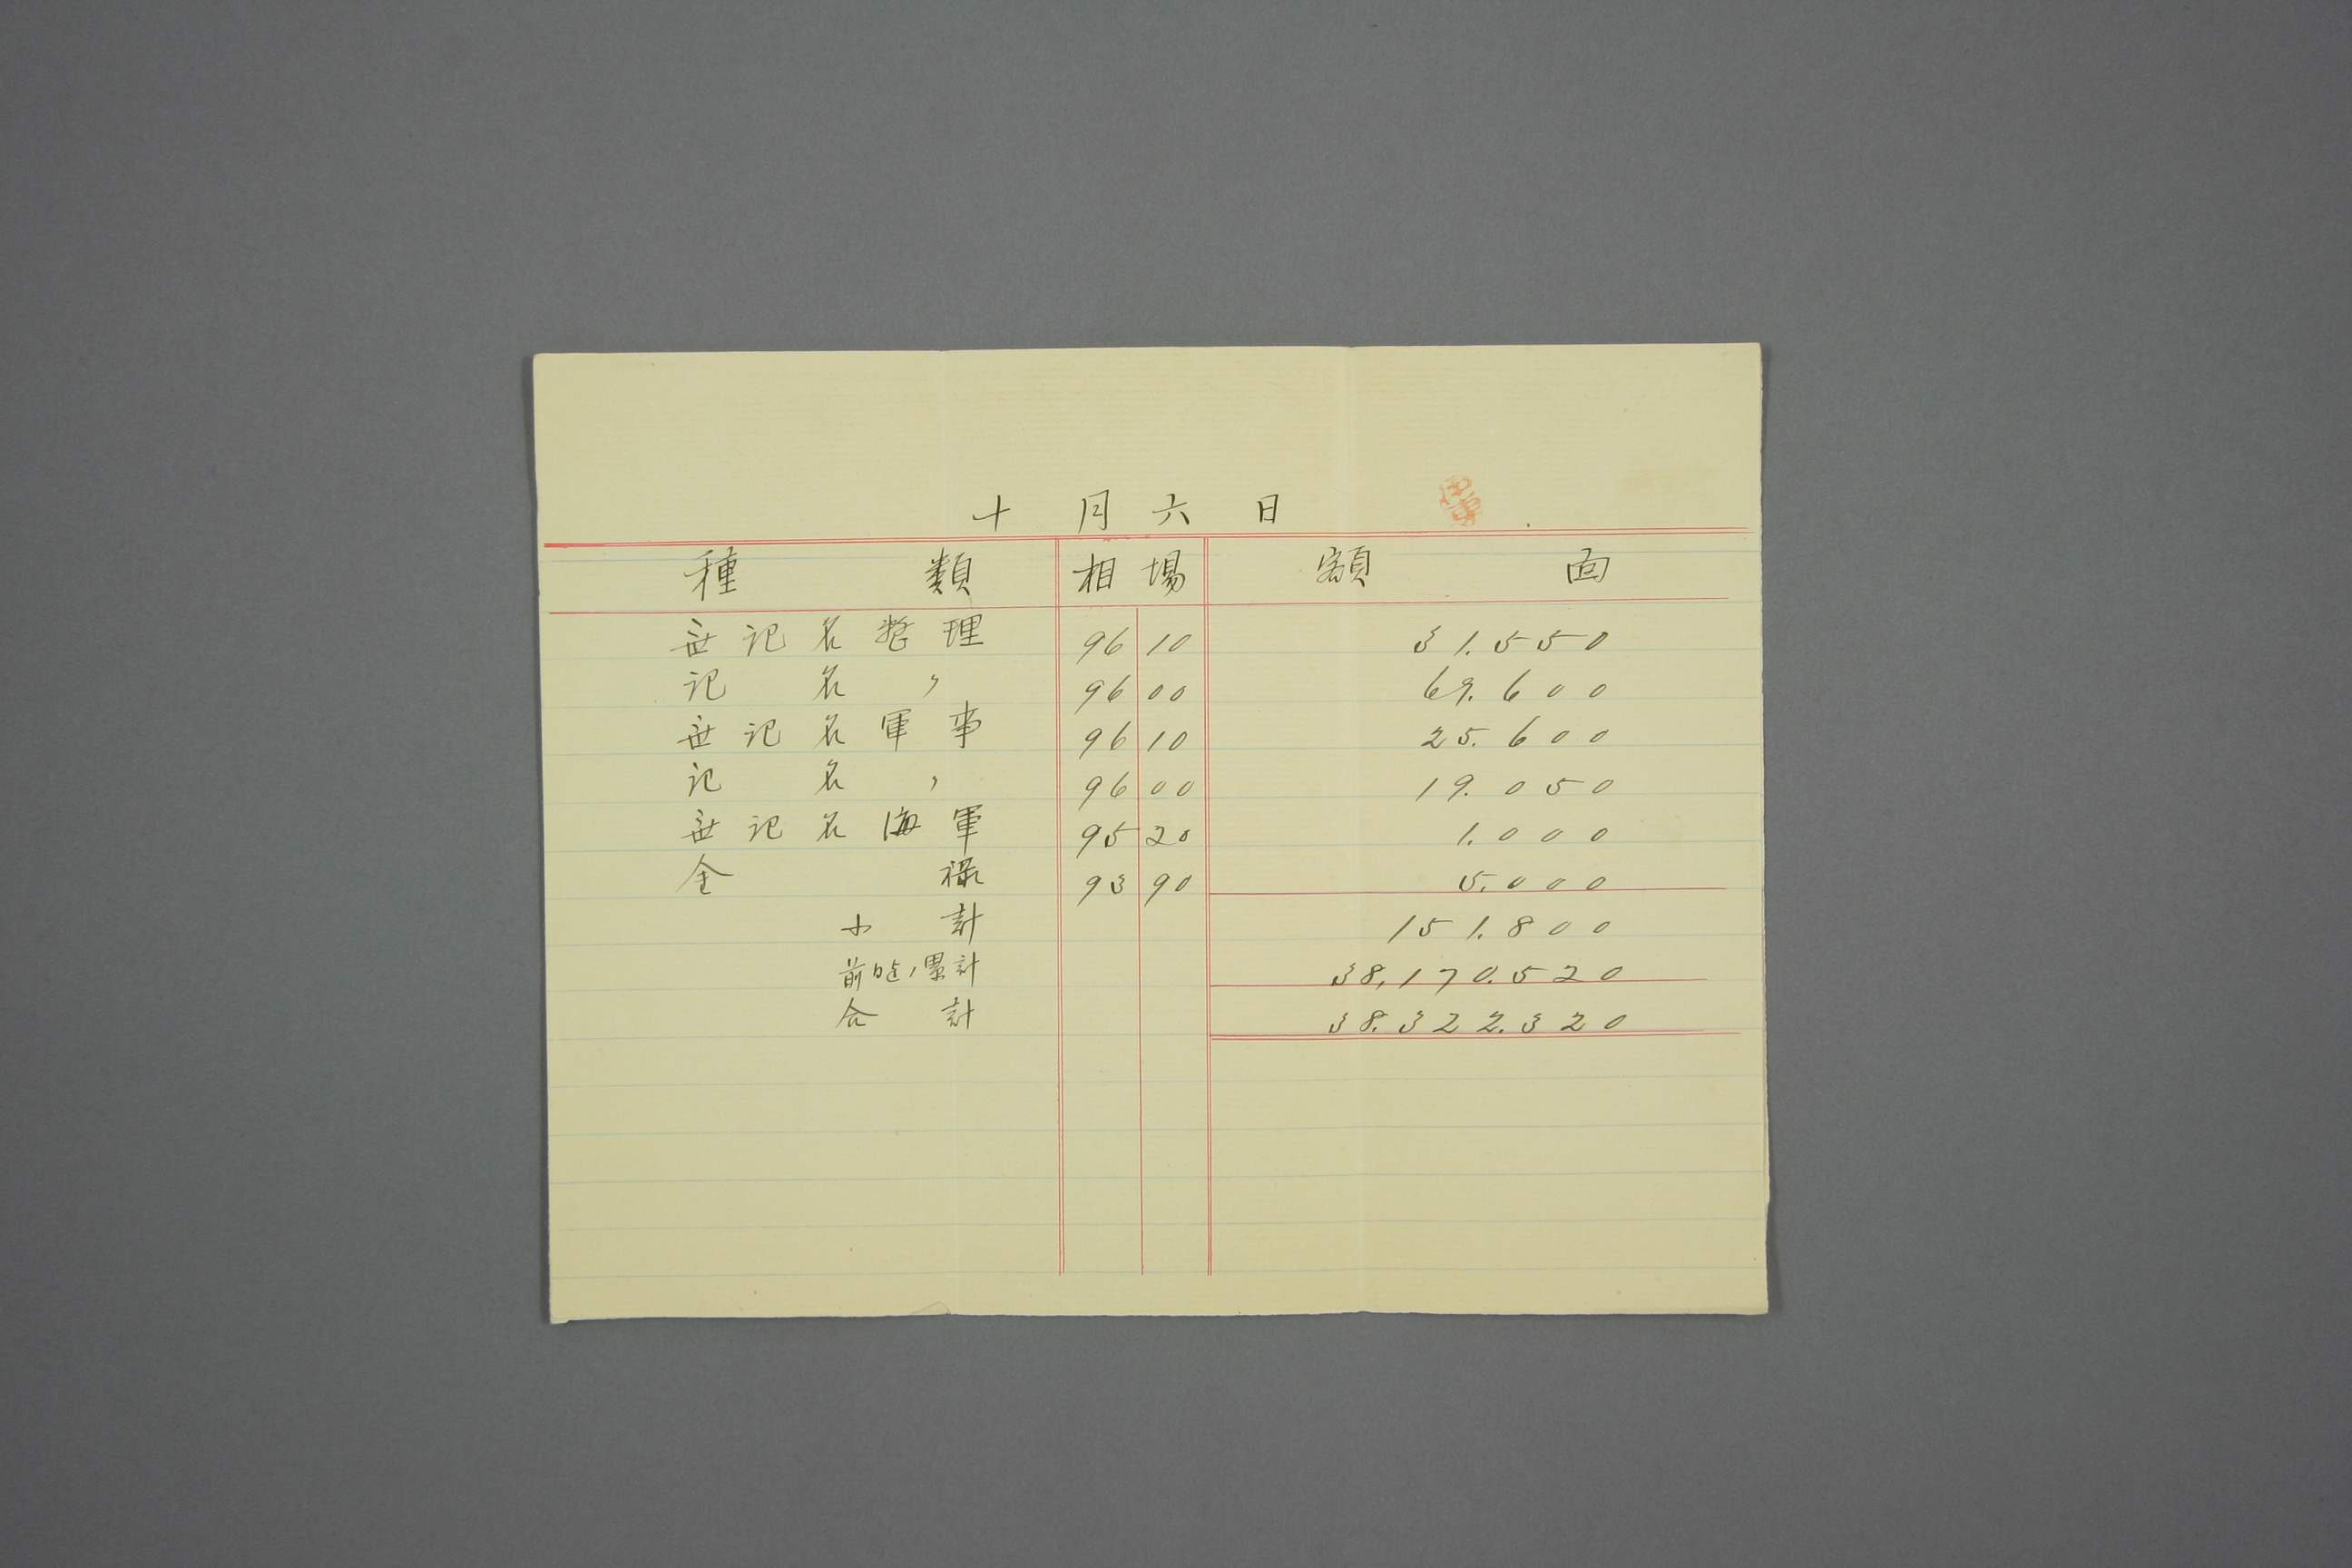 十月六日
種類 相場 額面
無記名整理 96 10 31.550
記名〃 96 00 69.600
無記名軍事 96 10 25.600
記名〃 96 00 19.050
無記名海軍 95 20 1.000
金禄 93 90 5.000
小計 151.800
前日迄ノ累計 38,170.520
合計 38.322.320